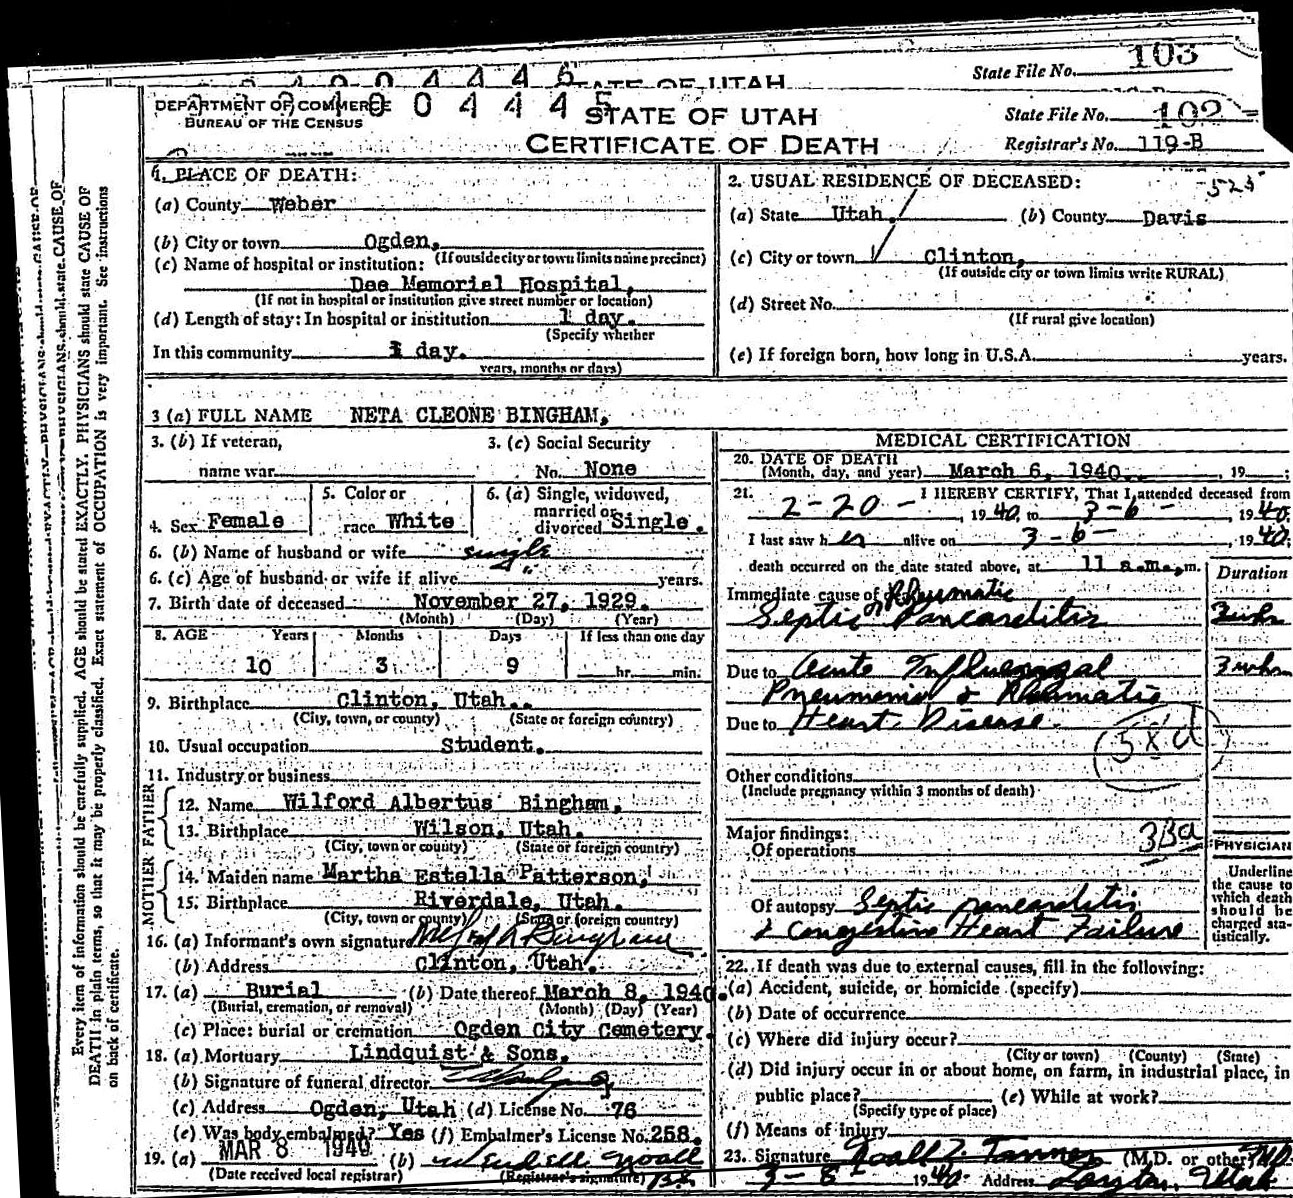 State File No. 103
4 4 4 6 STATE OF UTAH
DEPARTMENT OF COMMERCE
BUREAU OF THE CENSUS
0 0 4 4 4 5
STATE OF UTAH
CERTIFICATE OF DEATH
State File No. 102
Registrar's No. 119-B
1. PLACE OF DEATH:
(a) County Weber
(b) City or town Ogden,
(If outside city or town limits name precinct)
(c) Name of hospital or institution:
Dee Memorial Hospital,
(If not in hospital or institution give street number or location)
(d) Length of stay: In hospital or institution 1 day.
(Specify whether
In this community 1 day.
years, months or days)
2. USUAL RESIDENCE OF DECEASED:
525
(a) State Utah. (b) County Davis
(c) City or town Clinton,
(If outside city or town limits write RURAL)
(d) Street No.
(If rural give location)
(e) If foreign born, how long in U.S.A. years.
3 (a) FULL NAME NETA CLEONE BINGHAM,
3. (b) If veteran,
name war
3. (c) Social Security
No. None
4. Sex Female
5. Color or
race White
6. (a) Single, widowed,
married or
divorced Single.
6. (b) Name of husband or wife single
6. (c) Age of husband or wife if alive years.
7. Birth date of deceased November 27, 1929.
(Month) (Day) (Year)
8. AGE Years Months Days If less than one day
10 3 9 hr. min.
9. Birthplace Clinton, Utah.
(City, town, or county) (State or foreign country)
10. Usual occupation Student.
11. Industry or business
FATHER
12. Name Wilford Albertus Bingham,
13. Birthplace Wilson, Utah.
(City, town or county) (State or foreign country)
MOTHER
14. Maiden name Martha Estella Patterson,
15. Birthplace Riverdale, Utah.
(City, town or county) (State or foreign country)
16. (a) Informant's own signature Bingham
(b) Address Clinton, Utah.
17. (a) Burial (b) Date thereof March 8, 1940.
(Burial, cremation, or removal) (Month) (Day) (Year)
(c) Place: burial or cremation Ogden City Cemetery.
18. (a) Mortuary Lindquist & Sons.
(b) Signature of funeral director
(c) Address Ogden, Utah (d) License No. 76
(e) Was body embalmed? Yes (f) Embalmer's License No. 258.
19. (a) MAR 8 1940 (b) Wendell Noall
(Date received local registrar) (Registrar's signature)
MEDICAL CERTIFICATION
20. DATE OF DEATH
(Month, day, and year) March 6, 1940. , 19 ;
21. I HEREBY CERTIFY, That I attended deceased from
2-20- , 1940, to 3-6- , 1940;
I last saw her alive on 3-6- , 1940;
death occurred on the date stated above, at 11 a.m. m.
Duration
Immediate cause of Rheumatic
Septic or Pancarditis 3 wks
Due to Acute Influenzal 3 wks
Pneumonia & Rheumatic
Due to Heart Disease
58d
Other conditions
(Include pregnancy within 3 months of death)
Major findings:
Of operations
33a
PHYSICIAN
Underline
the cause to
which death
should be
charged sta-
tistically.
Of autopsy Septic pancarditis
& Congestive Heart Failure
22. If death was due to external causes, fill in the following:
(a) Accident, suicide, or homicide (specify)
(b) Date of occurrence
(c) Where did injury occur?
(City or town) (County) (State)
(d) Did injury occur in or about home, on farm, in industrial place, in
public place? (e) While at work?
(Specify type of place)
(f) Means of injury
23. Signature Noall Z. Tanner (M.D. or other) M.D.
3-8- 1940 Address Layton, Utah
Every item of information should be carefully supplied. AGE should be stated EXACTLY. PHYSICIANS should state CAUSE OF
DEATH in plain terms, so that it may be properly classified. Exact statement of OCCUPATION is very important. See instructions
on back of certificate.